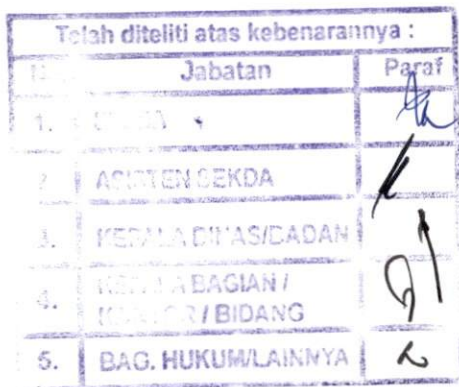 Telah diteliti atas kebenarannya :
Jabatan Paraf
1.
2. ASISTEN SEKDA
3. KEPALA DINAS/BADAN
4. BAGIAN /
/ BIDANG
5. BAG. HUKUM/LAINNYA